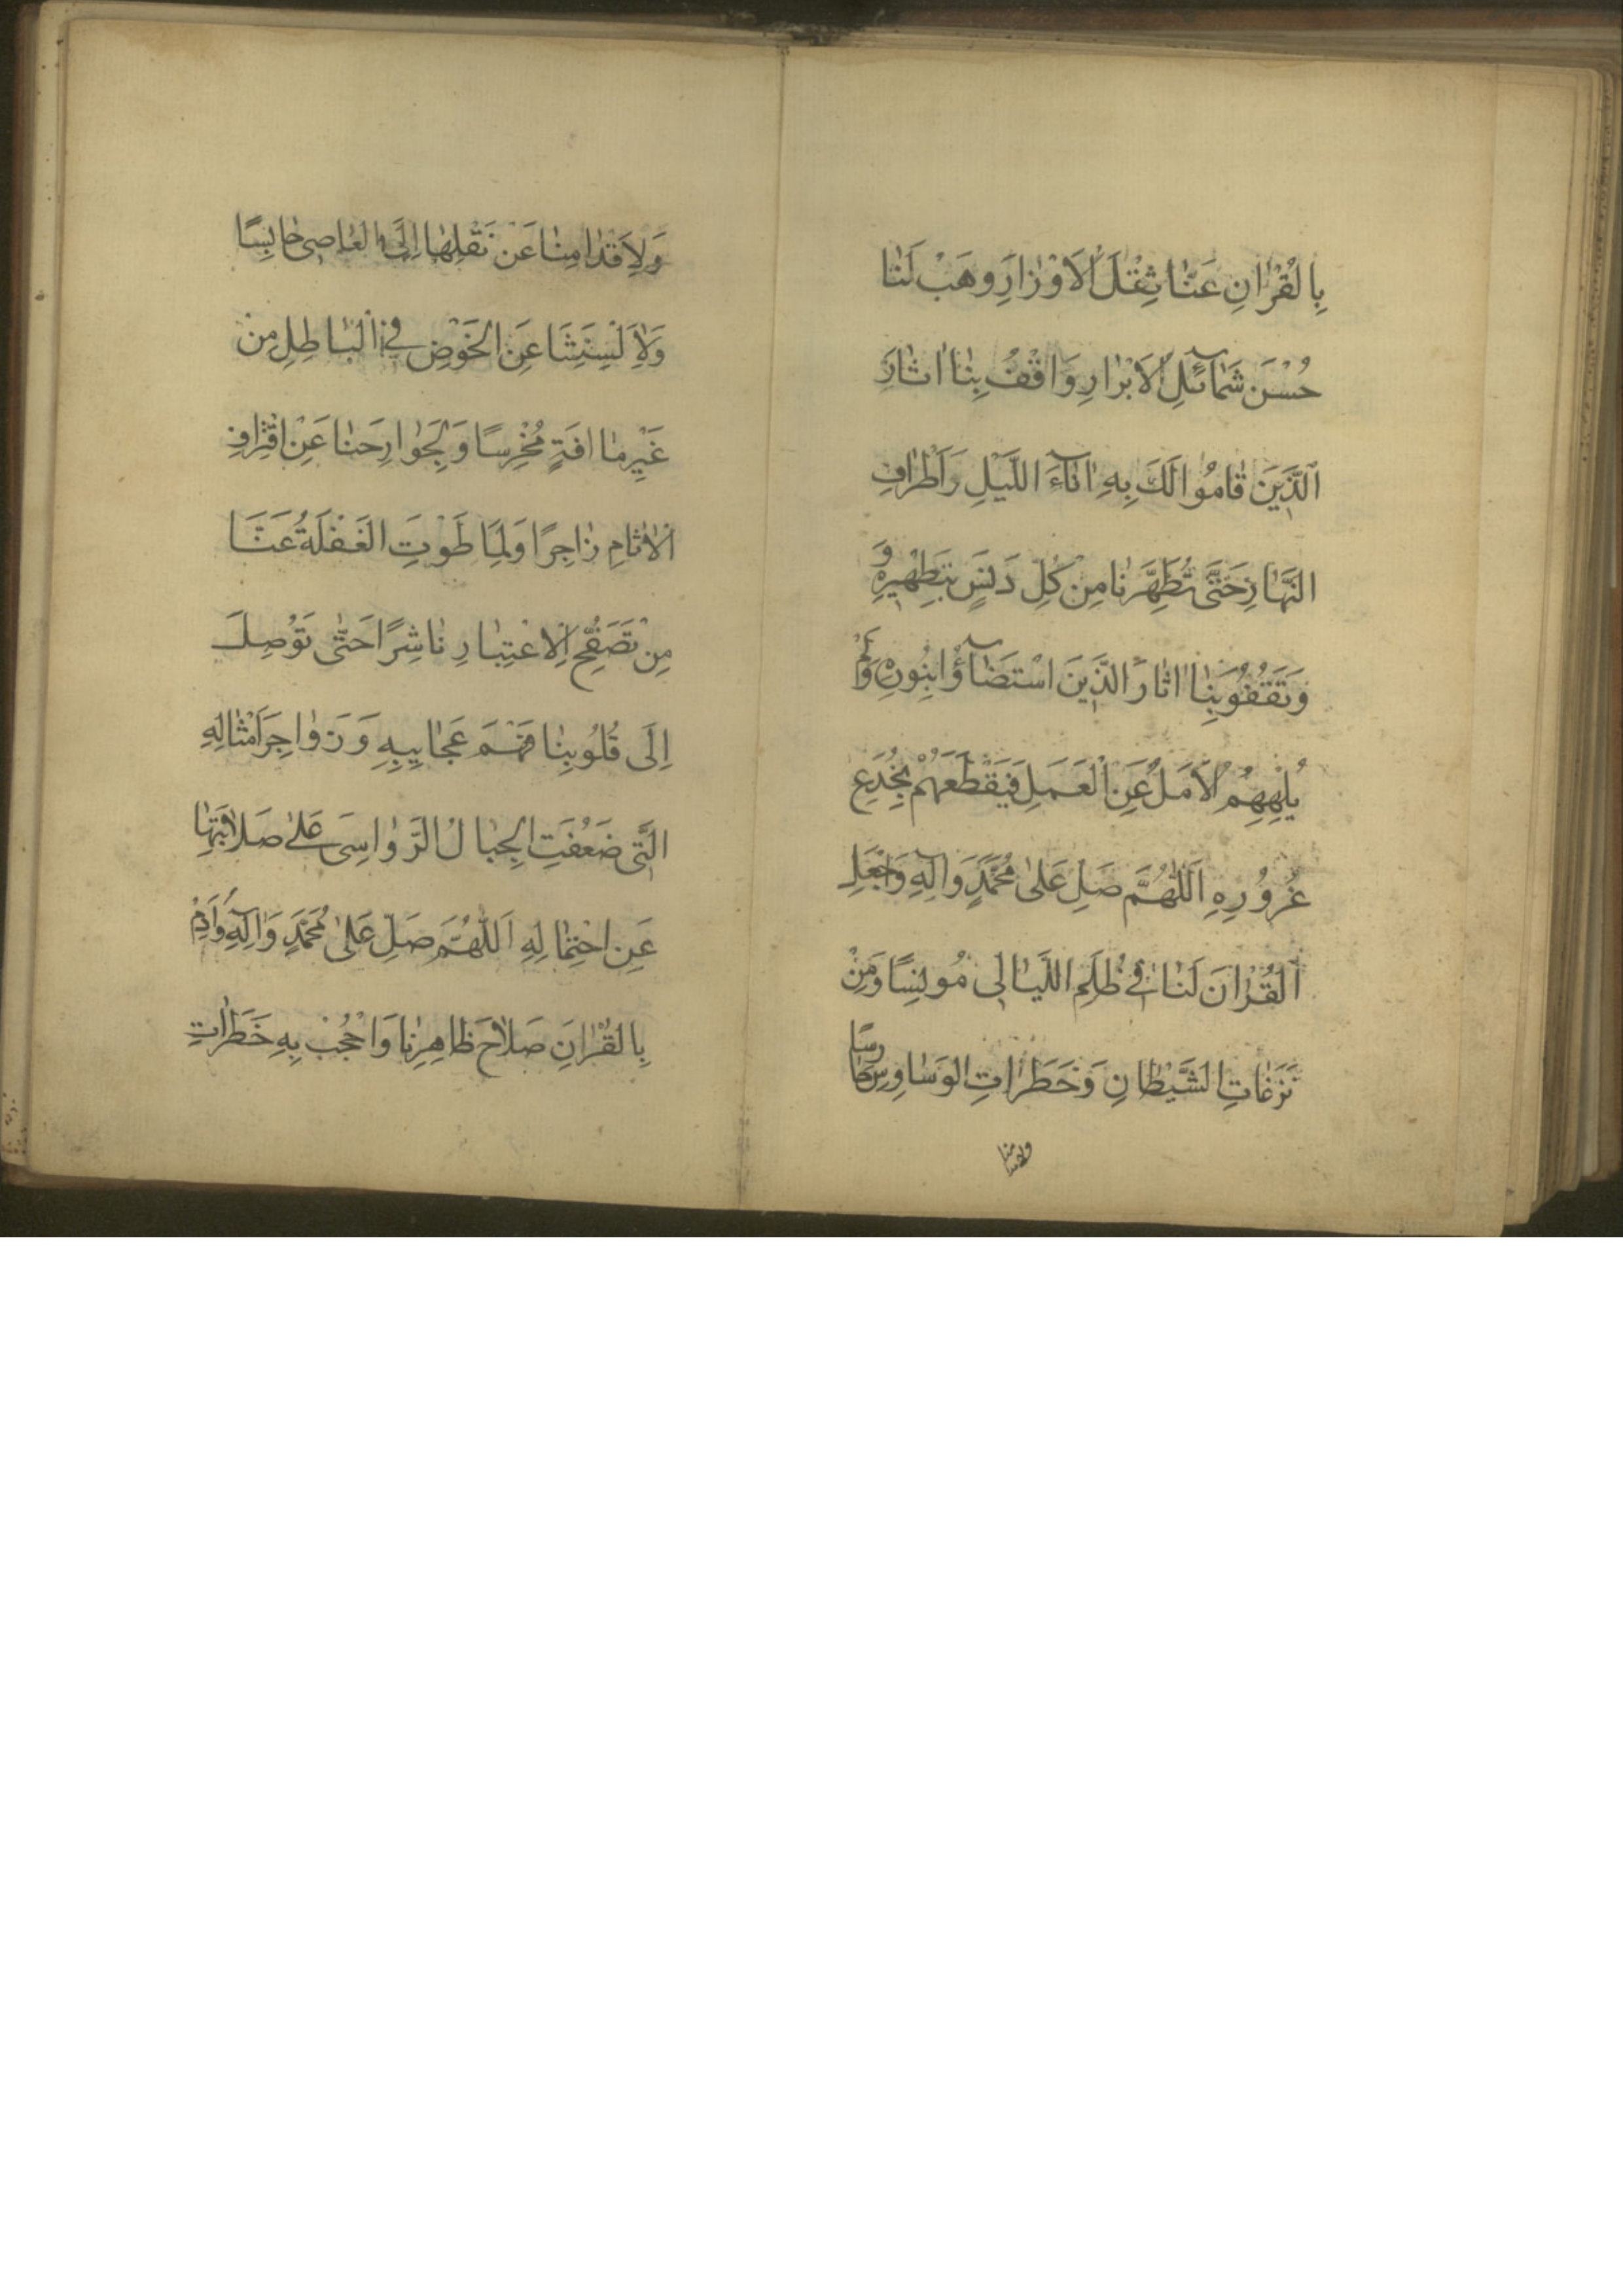 بِالْقُرْاٰنِ عَنَّا ثِقْلَ الْاَوْزٰارِ وَهَبْ لَنٰا
حُسْنَ شَمٰآئِلِ الْاَبْرٰارِ وَاقْفُ بِنٰا اٰثٰارَ
اَلَّذَّيِنَ قٰامُوا لَكَ بِهِ اٰنٰآءَ اللَّيْلِ وَاَطْرٰافِ
النَّهٰارِ حَتّٰى تُطَهِّرَنٰا مِنْ كُلِّ دَنَسٍ بِتَطْهِيرِهِ وَ
وَتَقْفُوَ بِنٰا اٰثٰارَ الَّذَّيِنَ اسْتَضٰآؤُا بِنُورِهِ وَلَمْ
يُلْهِهِمُ الْاَمَلُ عَنِ الْعَمَلِ فَيَقْطَعَهُمْ بِخُدَعِ
غُرُورِهِ اَللّٰهُمَّ صَلِّ عَلىٰ مُحَمَّدٍ وَاٰلِهِ وَاجْعَلِ
اَلْقُرْاٰنَ لَنٰا فِي ظُلَمِ اللَّيٰالِى مُونِسًا وَمِنْ
نَزَغٰاتِ الشَّيْطٰانِ وَخَطَرٰاتِ الْوَسٰاوِسِ حٰارِسًا
وَلِاَقْدٰامِنٰا عَنْ نَقْلِهٰا اِلَى الْمَعٰاصِى حٰابِسًا
وَلِاَلْسِنَتِنٰا عَنِ الْخَوْضِ فِي الْبٰاطِلِ مِنْ
غَيْرِ مٰا اٰفَةٍ مُخْرِسًا وَلِجَوٰارِحِنٰا عَنِ اقْتِرٰافِ
الْاٰثٰامِ زٰاجِرًا وَلِمٰا طَوَتِ الْغَفْلَةُ عَنَّا
مِنْ تَصَفُّحِ الْاِعْتِبٰارِ نٰاشِرًا حَتّٰى تُوْصِلَ
اِلَى قُلُوبِنٰا فَهْمَ عَجٰايِبِهِ وَزَوٰاجِرَ اَمْثٰالِهِ
الَّتِى ضَعُفَتِ الْجِبٰالُ الرَّوٰاسِىَ عَلىٰ صَلٰابَتِهٰا
عَنِ احْتِمٰالِهِ اَللّٰهُمَّ صَلِّ عَلىٰ مُحَمَّدٍ وَاٰلِهِ وَاَدِمْ
بِالْقُرْاٰنِ صَلٰاحَ ظٰاهِرِنٰا وَاحْجُبْ بِهِ خَطَرٰاتِ